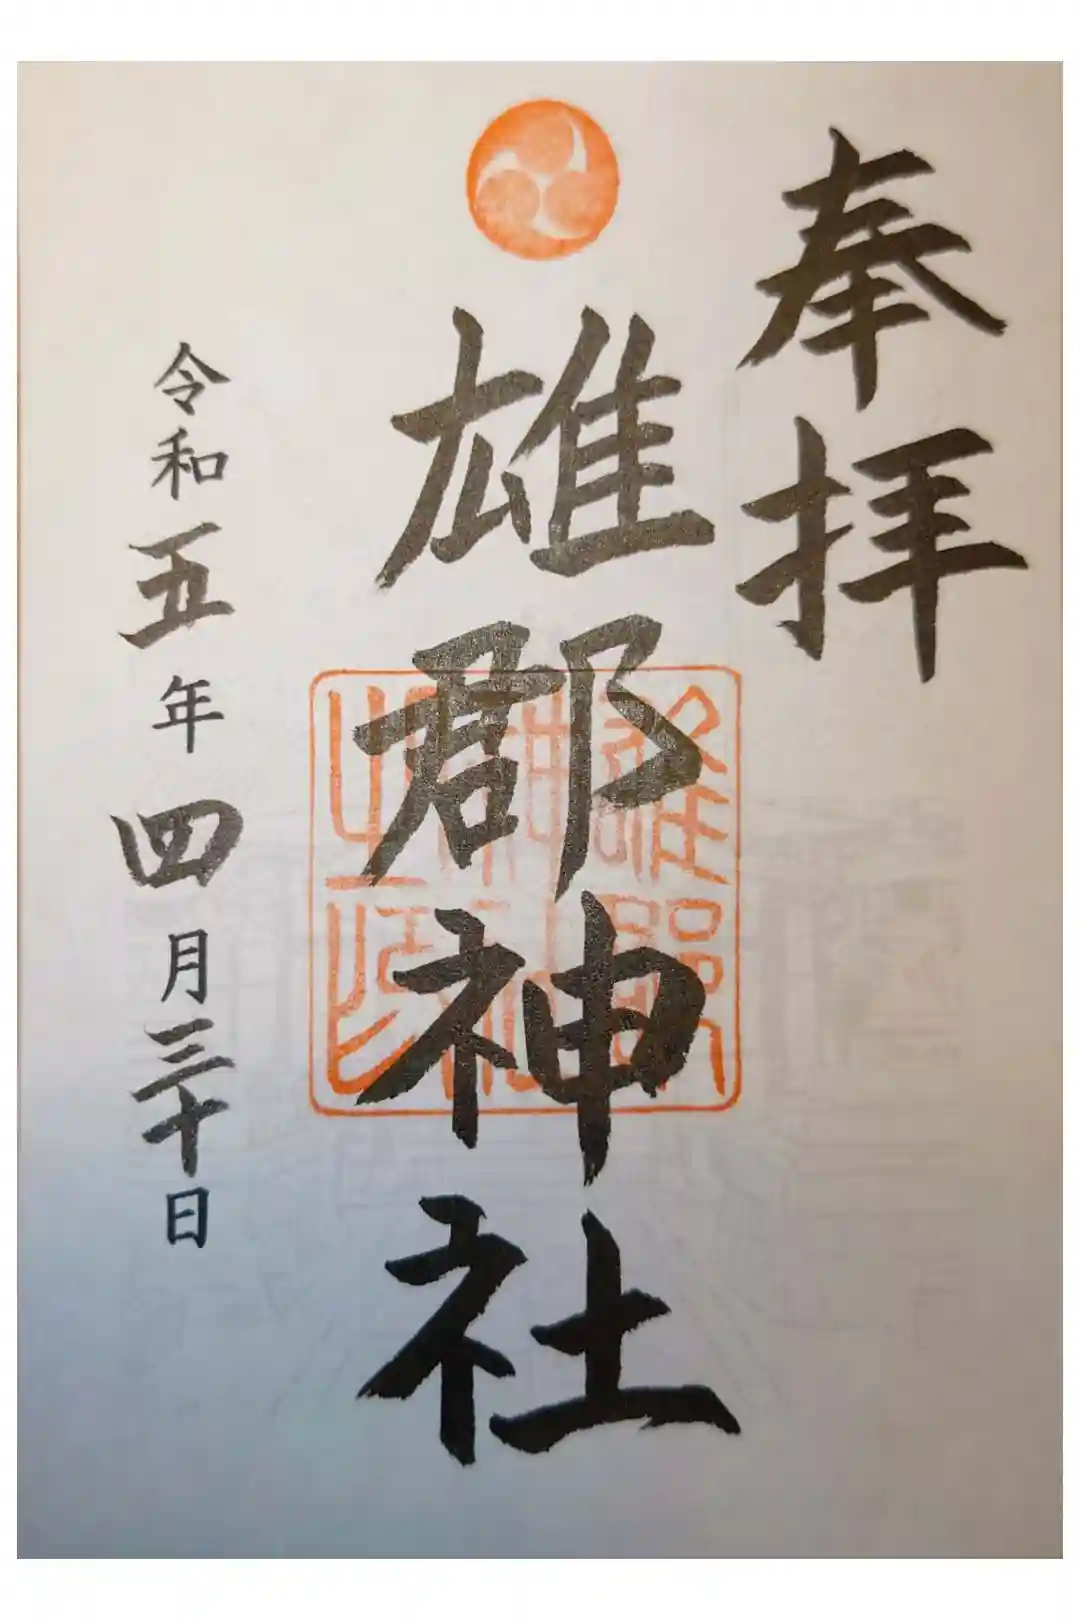 奉拝
雄郡神社
令和五年四月三十日